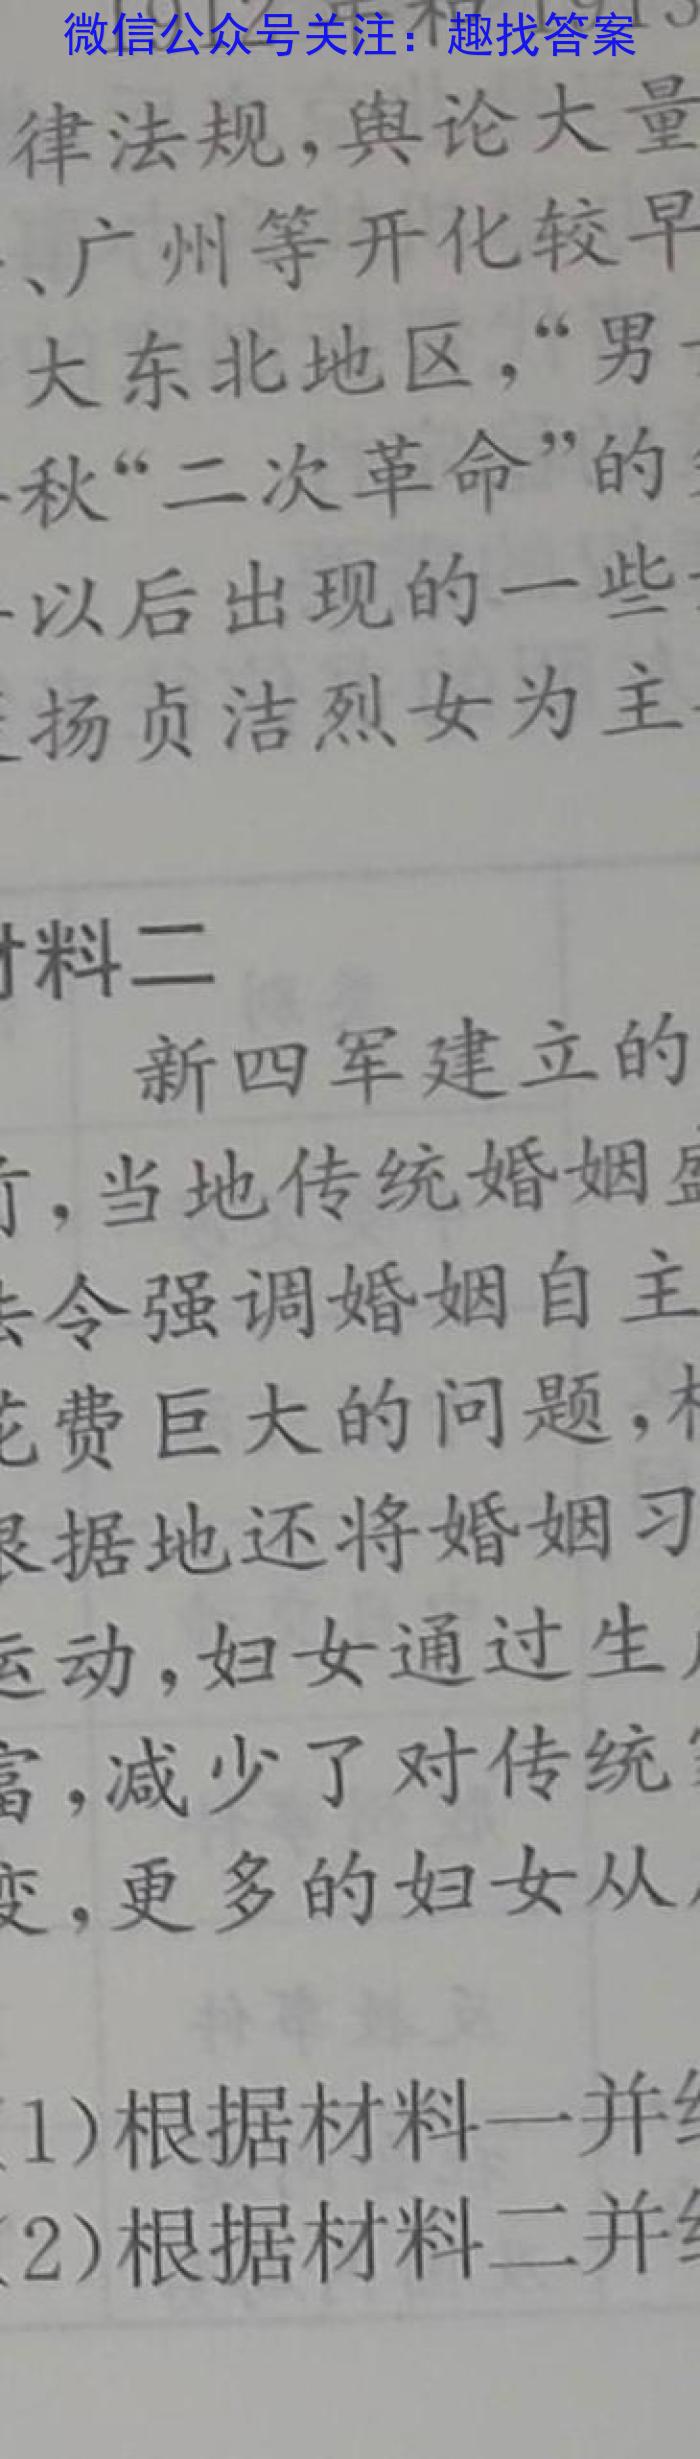 1912 年和 1913
微信公众号关注：趣找答案
律法规，舆论大量
、广州等开化较早
大东北地区，“男
秋“二次革命”的
以后出现的一些
扬贞洁烈女为主
材料二
新四军建立的
，当地传统婚姻
法令强调婚姻自主
花费巨大的问题，
根据地还将婚姻习
运动，妇女通过生
富，减少了对传统
变，更多的妇女从
(1)根据材料一并结
(2)根据材料二并结